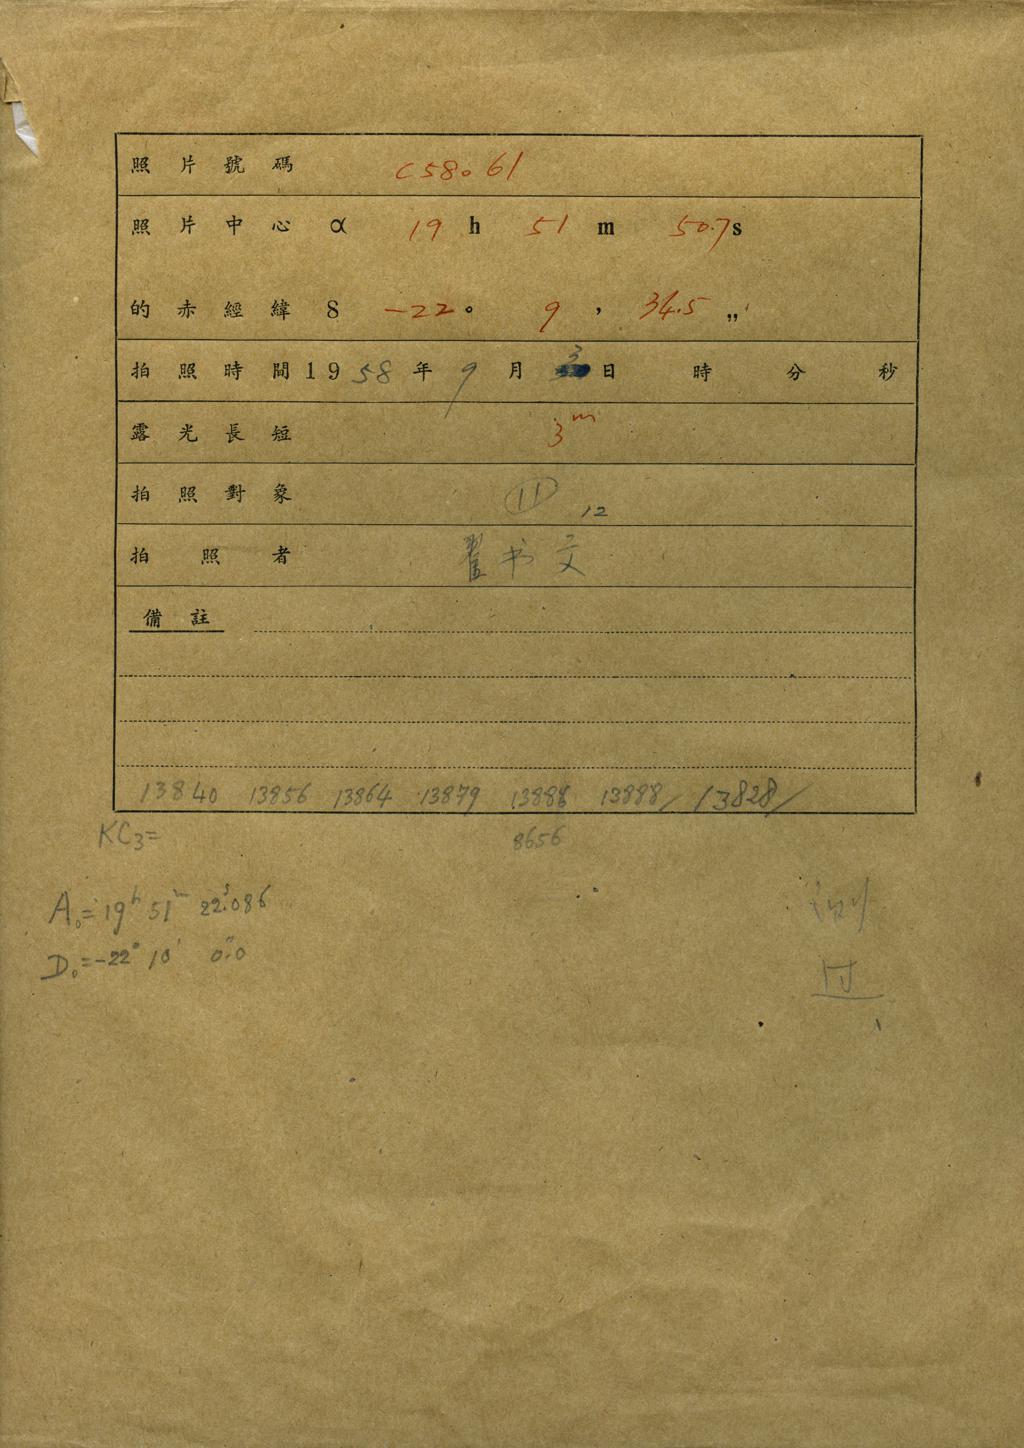 照片號碼 C58061
照片中心 α 19 h 51 m 50.7 s
的赤經緯 δ -22° 9 ′ 34.5 ″
拍照時間 1958年9月3日 時 分 秒
露光長短 3m
拍照對象 11 12
拍照者 翟书文
備註
13840 13856 13864 13879 13888 13888/ 13828/
KC3= 8656
A₀= 19h 51m 22s.086
D₀= -22° 10′ 0″.0
测
过